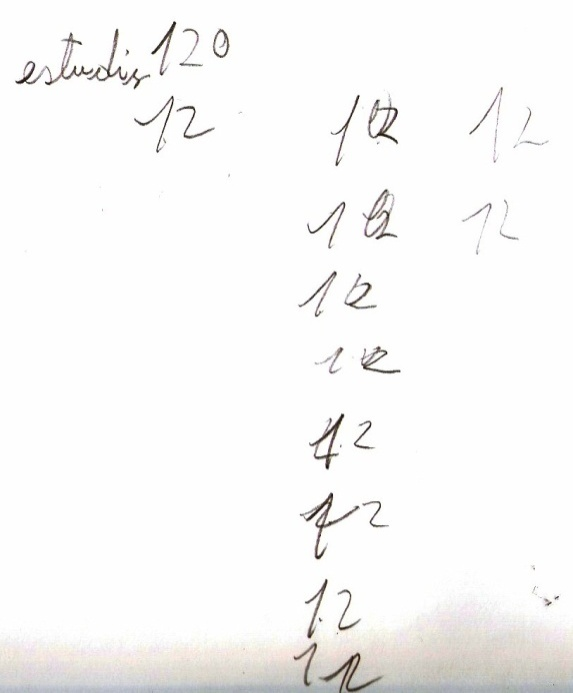 estudis 120
12 12 12
12 12
12
12
12
12
12
12